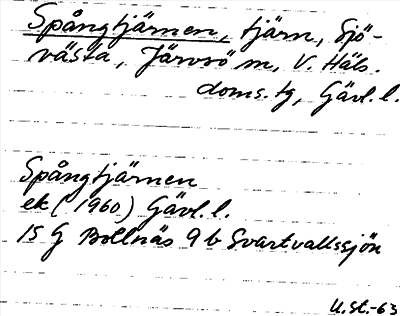 Spångtjärnen, tjärn, Sjö-
västa, Järvsö sn, V. Häls.
doms.tg, Gävl.l.
Spångtjärnen
ek (1960) Gävl.l.
15 G Bollnäs 9 b Svartvallssjön
U.St.-63